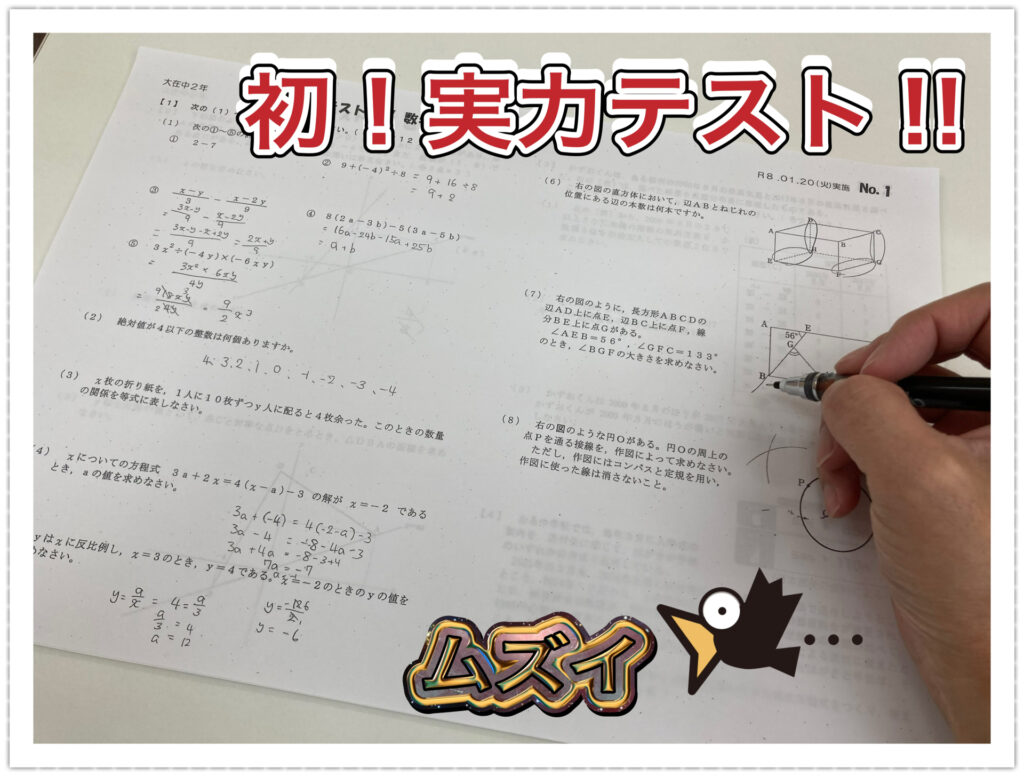 初！実力テスト!!
大在中2年
R8.01.20(火)実施 No.1
【1】 次の(1)
(1) 次の①~⑤の
① 2－7
② 9＋(－4)²÷8
= 9 + 16 ÷8
= 9 + 2
③ x－y/3 － x－2y/9
= 3x-y/9 - x-2y/9
= 3x-y-x+2y/9 = 2x+y/9
④ 8(2a－3b)－5(3a－5b)
= 16a-24b-15a+25b
= a+b
⑤ 3x²÷(－4y)×(－6xy)
= 3x² × 6xy/4y
= 9/2 x³
(2) 絶対値が4以下の整数は何個ありますか。
4、3、2、1、0、-1、-2、-3、-4
(3) x枚の折り紙を，1人に10枚ずつy人に配ると4枚余った。このときの数量
の関係を等式に表しなさい。
4) xについての方程式 3a＋2x＝4(x－a)－3 の解が x＝－2 である
とき，aの値を求めなさい。
3a + (-4) = 4(-2-a)-3
3a - 4 = -8-4a-3
3a + 4a = -8-3+4
7a = -7
a = -1
yはxに反比例し，x＝3のとき，y＝4である。x＝－2のときのyの値を
めなさい。
y = a/x = 4 = a/3
a/3 = 4
a = 12
y = -6
(6) 右の図の直方体において，辺ABとねじれの
位置にある辺の本数は何本ですか。
A
B
C
E
F
G
H
(7) 右の図のように，長方形ABCDの
辺AD上に点E，辺BC上に点F，線
分BE上に点Gがある。
∠AEB＝56°，∠GFC＝133°
のとき，∠BGFの大きさを求めなさい。
A E
56°
G
B
(8) 右の図のような円Oがある。円Oの周上の
点Pを通る接線を，作図によって求めなさい。
ただし，作図にはコンパスと定規を用い，
作図に使った線は消さないこと。
P
ムズイ